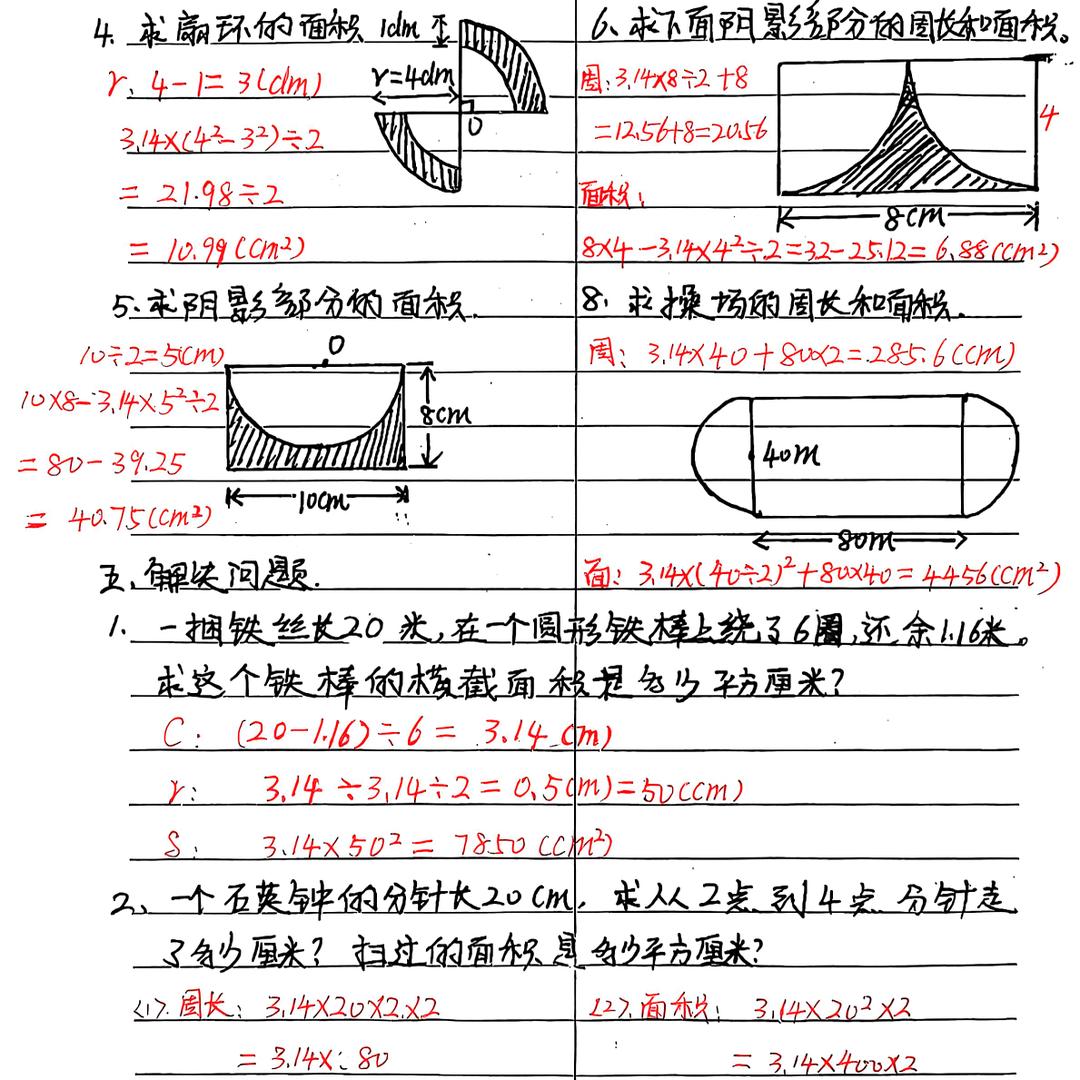 4. 求扇环的面积 1dm
r=4dm
O
r. 4-1=3(dm)
3.14×(4²-3²)÷2
= 21.98÷2
= 10.99(cm²)
6. 求下面阴影部分的周长和面积。
周: 3.14×8÷2+8
=12.56+8=20.56
4
8cm
面积:
8×4-3.14×4²÷2=32-25.12=6.88(cm²)
5. 求阴影部分的面积.
10÷2=5(cm)
O
10×8-3.14×5²÷2
8cm
=80-39.25
10cm
= 40.75(cm²)
8. 求操场的周长和面积.
周: 3.14×40+80×2=285.6(cm)
40m
80m
面: 3.14×(40÷2)²+80×40=4456(cm²)
五、解决问题.
1. 一捆铁丝长20米,在一个圆形铁棒上绕了6圈,还余1.16米。
求这个铁棒的横截面积是多少平方厘米?
C: (20-1.16)÷6= 3.14(m)
r: 3.14÷3.14÷2=0.5(m)=50(cm)
S: 3.14×50²= 7850(cm²)
2、一个石英钟的分针长20cm, 求从2点到4点分针走
了多少厘米? 扫过的面积是多少平方厘米?
<1>. 周长: 3.14×20×2×2
= 3.14×80
<2>. 面积: 3.14×20²×2
= 3.14×400×2